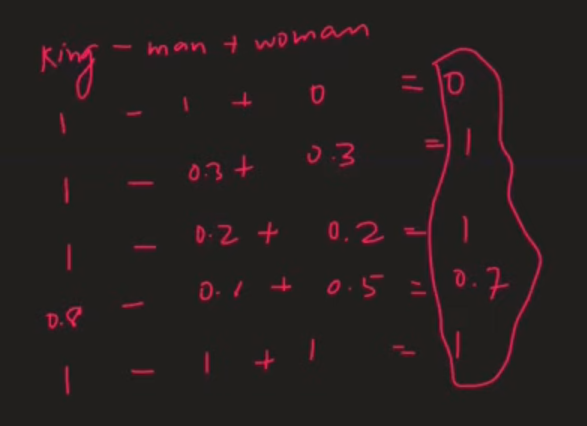 King - man + woman
1 - 1 + 0 = 0
1 - 0.3 + 0.3 = 1
1 - 0.2 + 0.2 = 1
0.8 - 0.1 + 0.5 = 0.7
1 - 1 + 1 = 1